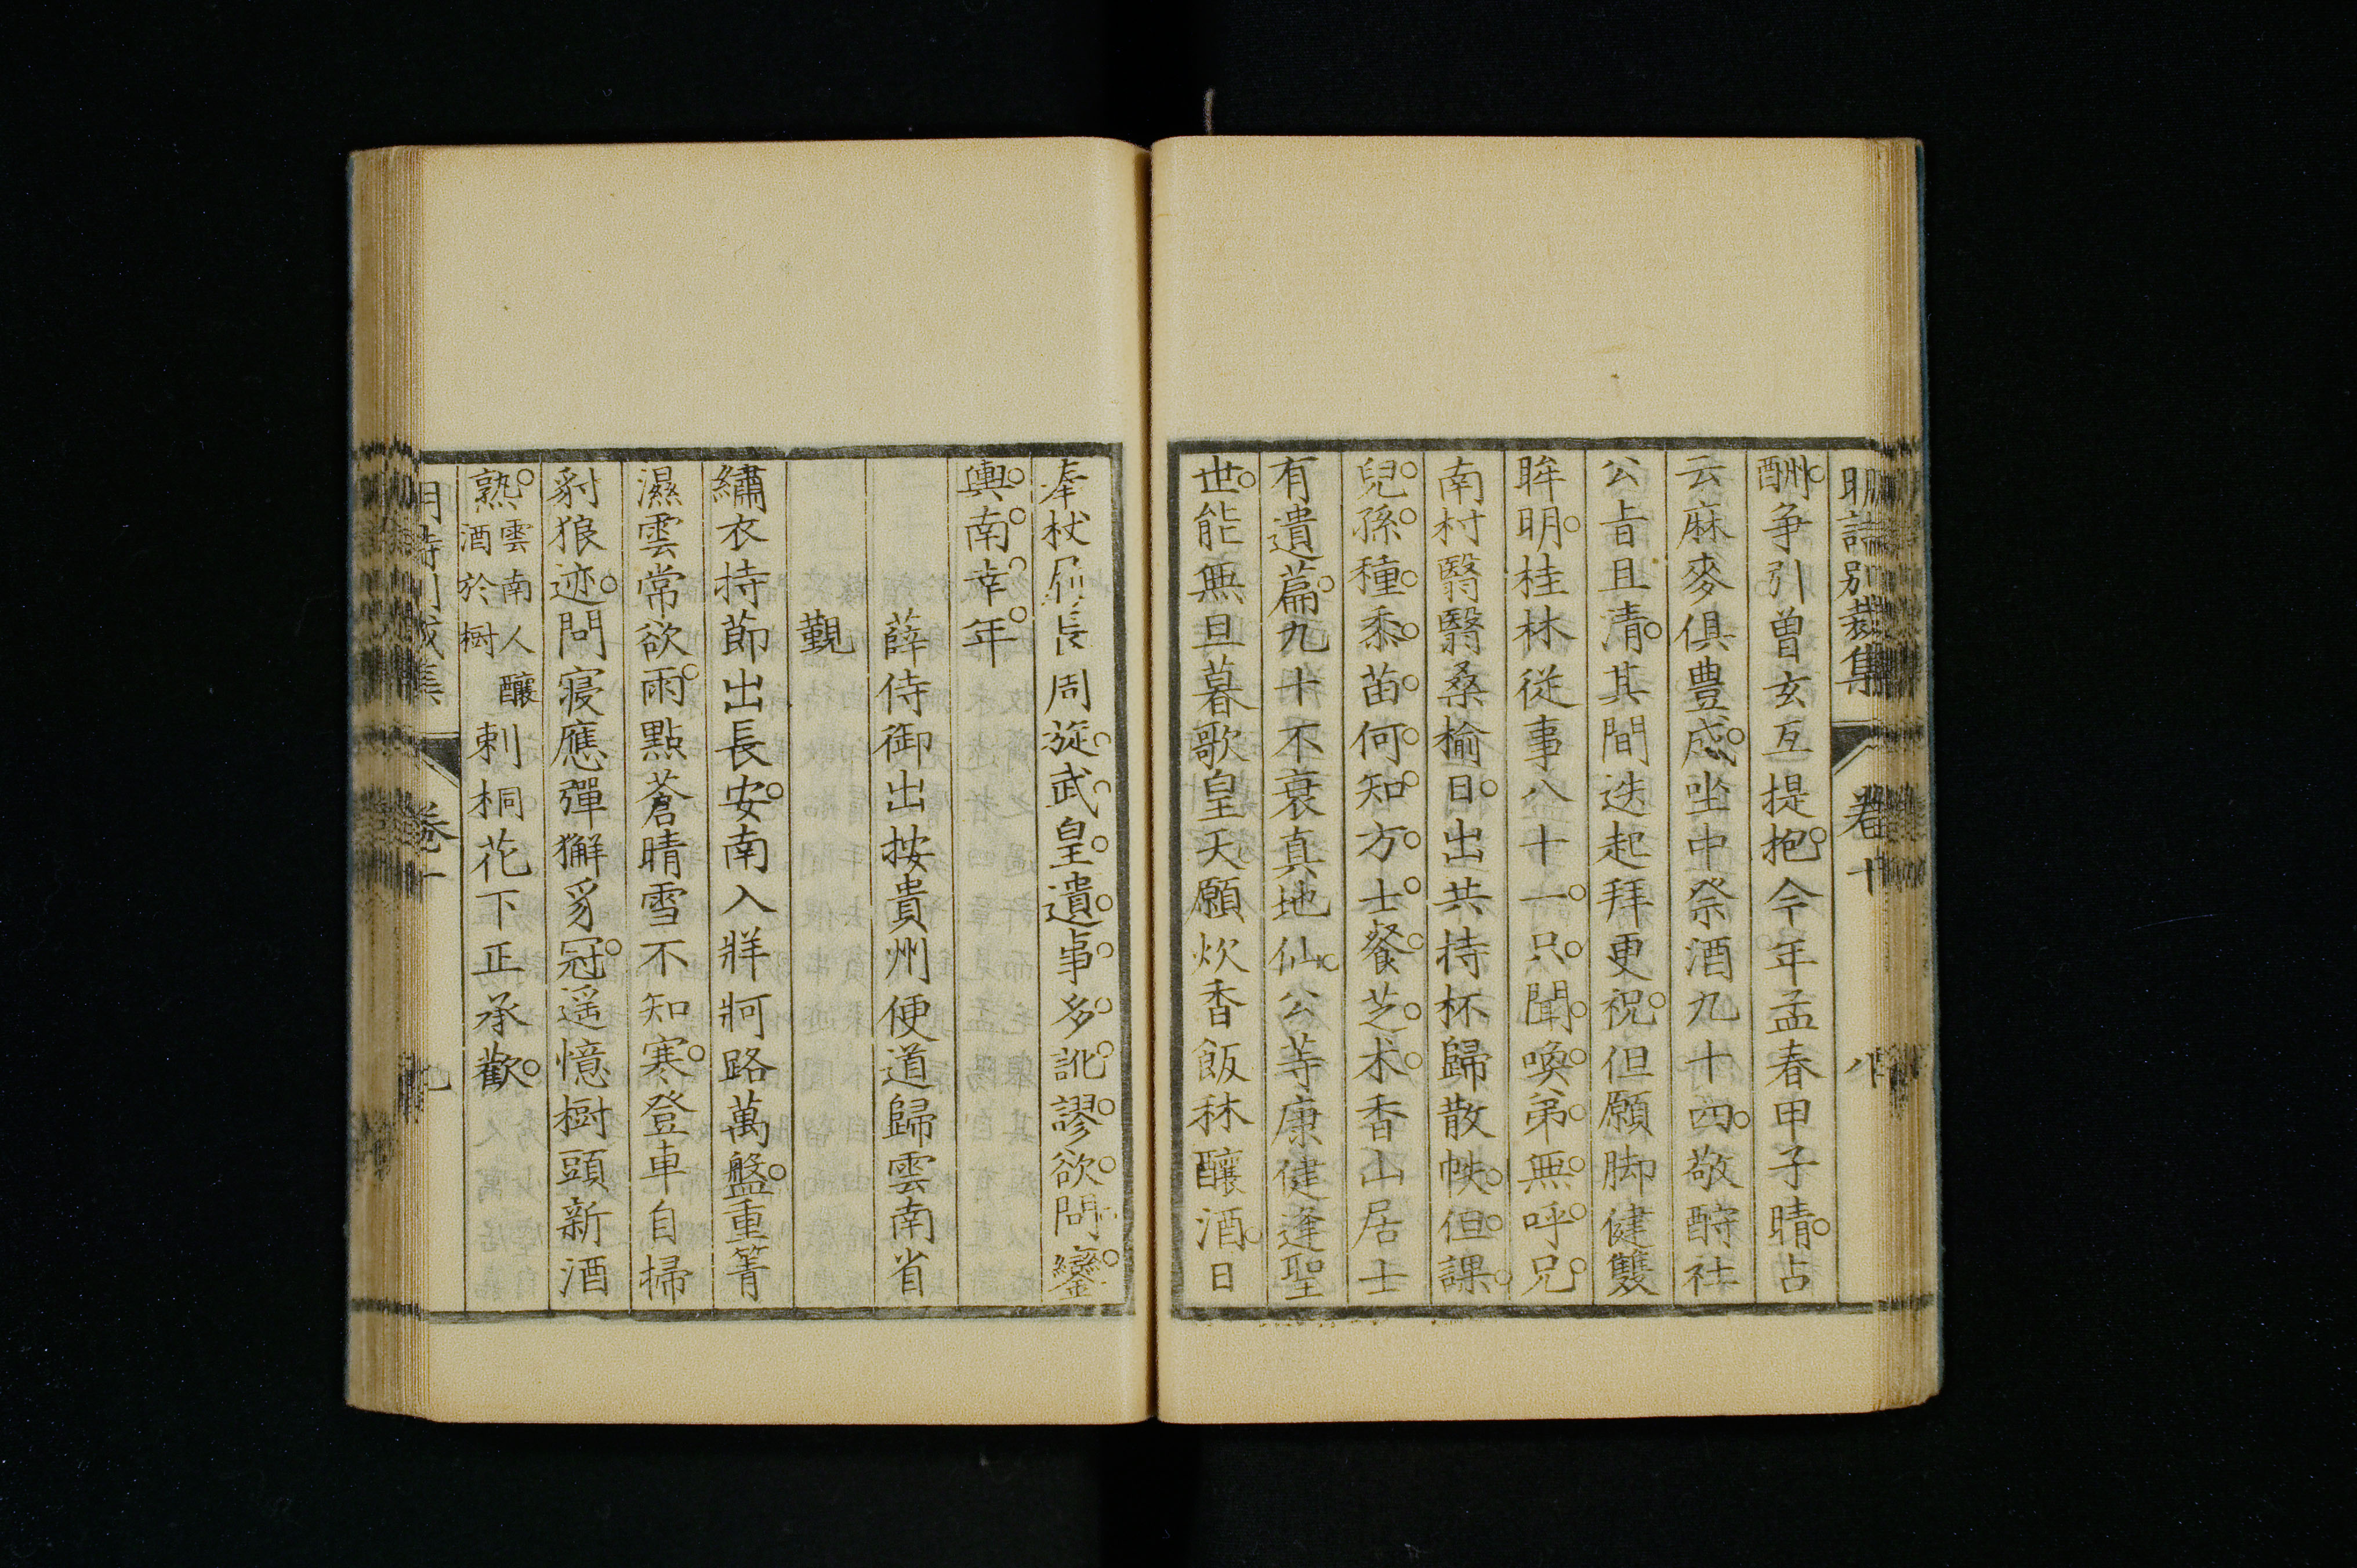 明詩別裁集 卷十 八
酬争引曾玄互提抱今年孟春甲子晴占
云麻麥俱豊成坐中祭酒九十四敬酹社
公旨且清其間迭起拜更祝但願脚健雙
眸明桂林從事八十一只聞喚弟無呼兄
南村翳翳桑榆日出共持杯歸散帙但課
兒孫種黍苗何知方士餐芝术香山居士
有遺篇九十不衰真地仙公等康健逢聖
世能無旦暮歌皇天願炊香飯秫釀酒日
奉杖屨長周旋武皇遺事多訛謬欲問鑾
輿南幸年
薛侍御出按貴州便道歸雲南省
覲
繡衣持節出長安南入牂牁路萬盤重箐
濕雲常欲雨點蒼晴雪不知寒登車自掃
豺狼迹問寢應彈獬豸冠遥憶樹頭新酒
熟雲南人釀酒於樹刺桐花下正承歡
卷十 九